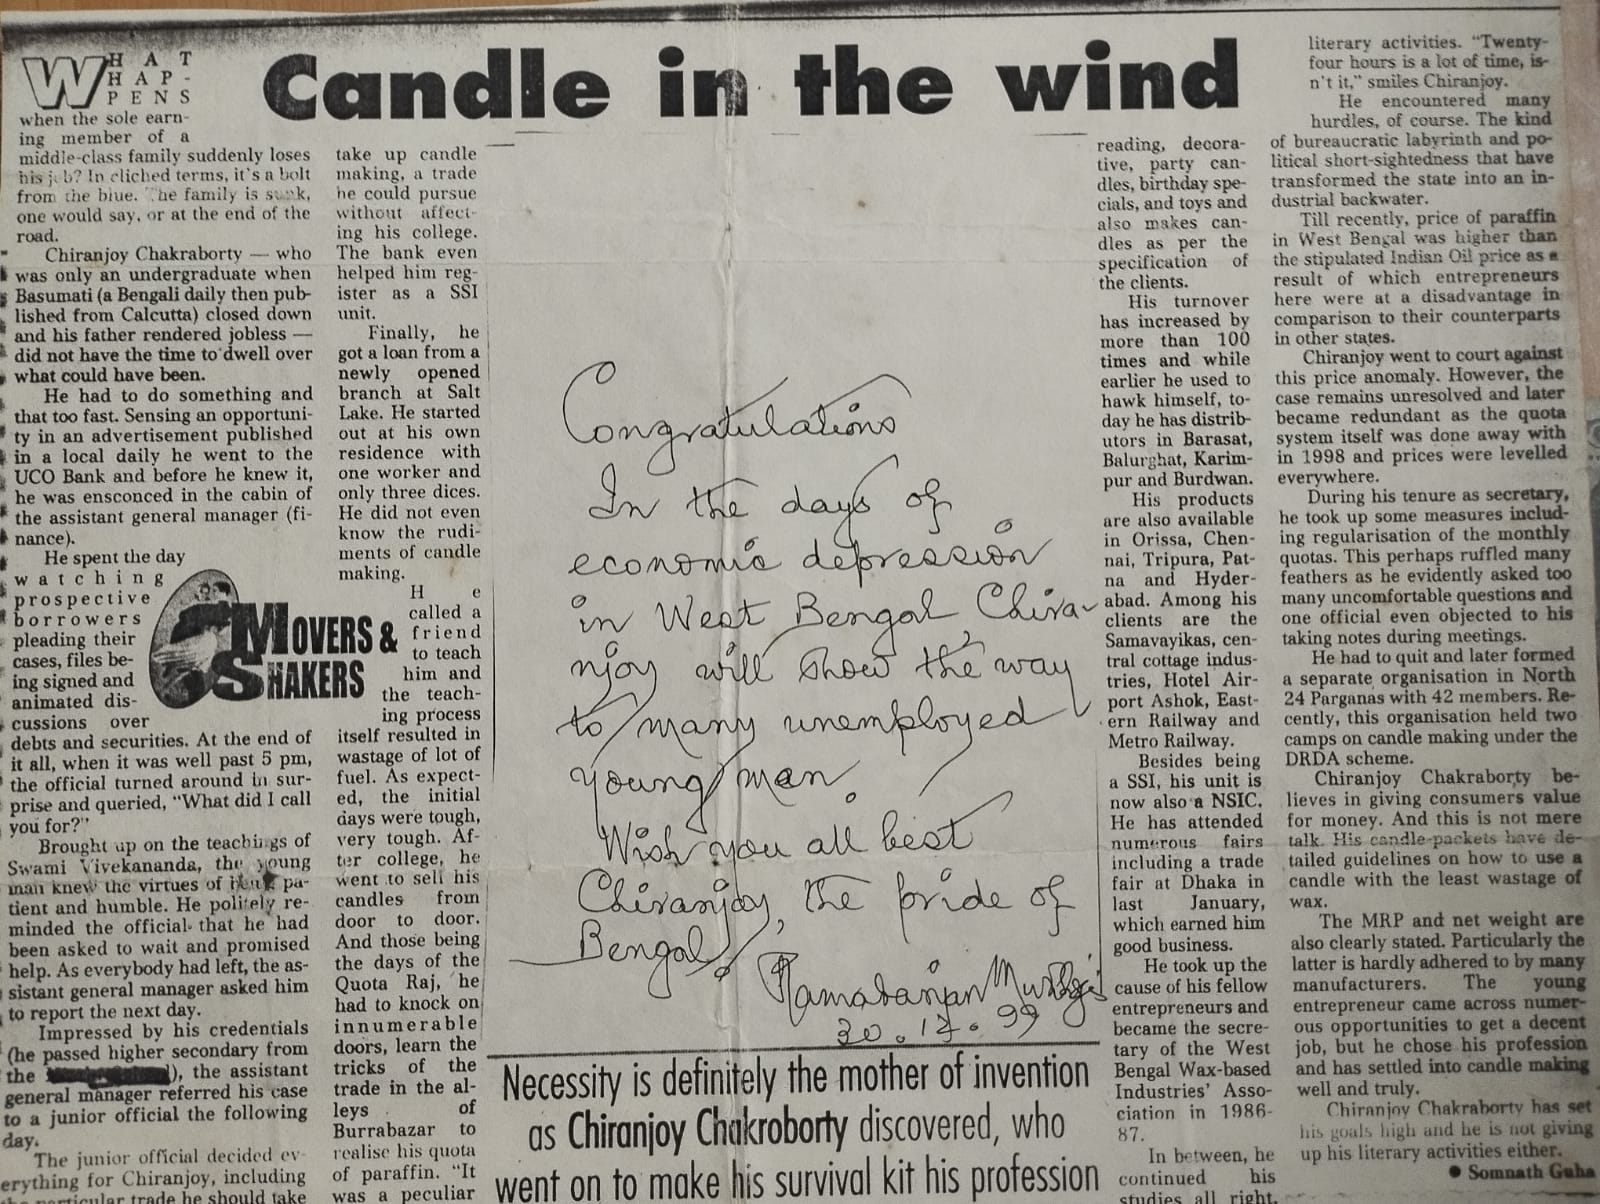 Candle in the wind
WHAT
HAP-
PENS
when the sole earn-
ing member of a
middle-class family suddenly loses
his job? In cliched terms, it's a bolt
from the blue. The family is sunk,
one would say, or at the end of the
road.
Chiranjoy Chakraborty — who
was only an undergraduate when
Basumati (a Bengali daily then pub-
lished from Calcutta) closed down
and his father rendered jobless —
did not have the time to dwell over
what could have been.
He had to do something and
that too fast. Sensing an opportuni-
ty in an advertisement published
in a local daily he went to the
UCO Bank and before he knew it,
he was ensconced in the cabin of
the assistant general manager (fi-
nance).
He spent the day
watching
prospective
borrowers
pleading their
cases, files be-
ing signed and
animated dis-
cussions over
debts and securities. At the end of
it all, when it was well past 5 pm,
the official turned around in sur-
prise and queried, "What did I call
you for?"
Brought up on the teachings of
Swami Vivekananda, the young
man knew the virtues of being pa-
tient and humble. He politely re-
minded the official that he had
been asked to wait and promised
help. As everybody had left, the as-
sistant general manager asked him
to report the next day.
Impressed by his credentials
(he passed higher secondary from
the ), the assistant
general manager referred his case
to a junior official the following
day.
The junior official decided ev-
erything for Chiranjoy, including
the particular trade he should take
MOVERS &
SHAKERS
take up candle
making, a trade
he could pursue
without affect-
ing his college.
The bank even
helped him reg-
ister as a SSI
unit.
Finally, he
got a loan from a
newly opened
branch at Salt
Lake. He started
out at his own
residence with
one worker and
only three dices.
He did not even
know the rudi-
ments of candle
making.
He
called a
friend
to teach
him and
the teach-
ing process
itself resulted in
wastage of lot of
fuel. As expect-
ed, the initial
days were tough,
very tough. Af-
ter college, he
went to sell his
candles from
door to door.
And those being
the days of the
Quota Raj, he
had to knock on
innumerable
doors, learn the
tricks of the
trade in the al-
leys of
Burrabazar to
realise his quota
of paraffin. "It
was a peculiar
Congratulations
In the days of
economic depression
in West Bengal Chira-
njoy will show the way
to many unemployed
young man.
Wish you all best
Chiranjoy, the pride of
Bengal
Ramaranjan Mukherji
30.12.99
Necessity is definitely the mother of invention
as Chiranjoy Chakroborty discovered, who
went on to make his survival kit his profession
reading, decora-
tive, party can-
dles, birthday spe-
cials, and toys and
also makes can-
dles as per the
specification of
the clients.
His turnover
has increased by
more than 100
times and while
earlier he used to
hawk himself, to-
day he has distrib-
utors in Barasat,
Balurghat, Karim-
pur and Burdwan.
His products
are also available
in Orissa, Chen-
nai, Tripura, Pat-
na and Hyder-
abad. Among his
clients are the
Samavayikas, cen-
tral cottage indus-
tries, Hotel Air-
port Ashok, East-
ern Railway and
Metro Railway.
Besides being
a SSI, his unit is
now also a NSIC.
He has attended
numerous fairs
including a trade
fair at Dhaka in
last January,
which earned him
good business.
He took up the
cause of his fellow
entrepreneurs and
became the secre-
tary of the West
Bengal Wax-based
Industries' Asso-
ciation in 1986-
87.
In between, he
continued his
studies all right,
literary activities. "Twenty-
four hours is a lot of time, is-
n't it," smiles Chiranjoy.
He encountered many
hurdles, of course. The kind
of bureaucratic labyrinth and po-
litical short-sightedness that have
transformed the state into an in-
dustrial backwater.
Till recently, price of paraffin
in West Bengal was higher than
the stipulated Indian Oil price as a
result of which entrepreneurs
here were at a disadvantage in
comparison to their counterparts
in other states.
Chiranjoy went to court against
this price anomaly. However, the
case remains unresolved and later
became redundant as the quota
system itself was done away with
in 1998 and prices were levelled
everywhere.
During his tenure as secretary,
he took up some measures includ-
ing regularisation of the monthly
quotas. This perhaps ruffled many
feathers as he evidently asked too
many uncomfortable questions and
one official even objected to his
taking notes during meetings.
He had to quit and later formed
a separate organisation in North
24 Parganas with 42 members. Re-
cently, this organisation held two
camps on candle making under the
DRDA scheme.
Chiranjoy Chakraborty be-
lieves in giving consumers value
for money. And this is not mere
talk. His candle-packets have de-
tailed guidelines on how to use a
candle with the least wastage of
wax.
The MRP and net weight are
also clearly stated. Particularly the
latter is hardly adhered to by many
manufacturers. The young
entrepreneur came across numer-
ous opportunities to get a decent
job, but he chose his profession
and has settled into candle making
well and truly.
Chiranjoy Chakraborty has set
his goals high and he is not giving
up his literary activities either.
● Somnath Guha